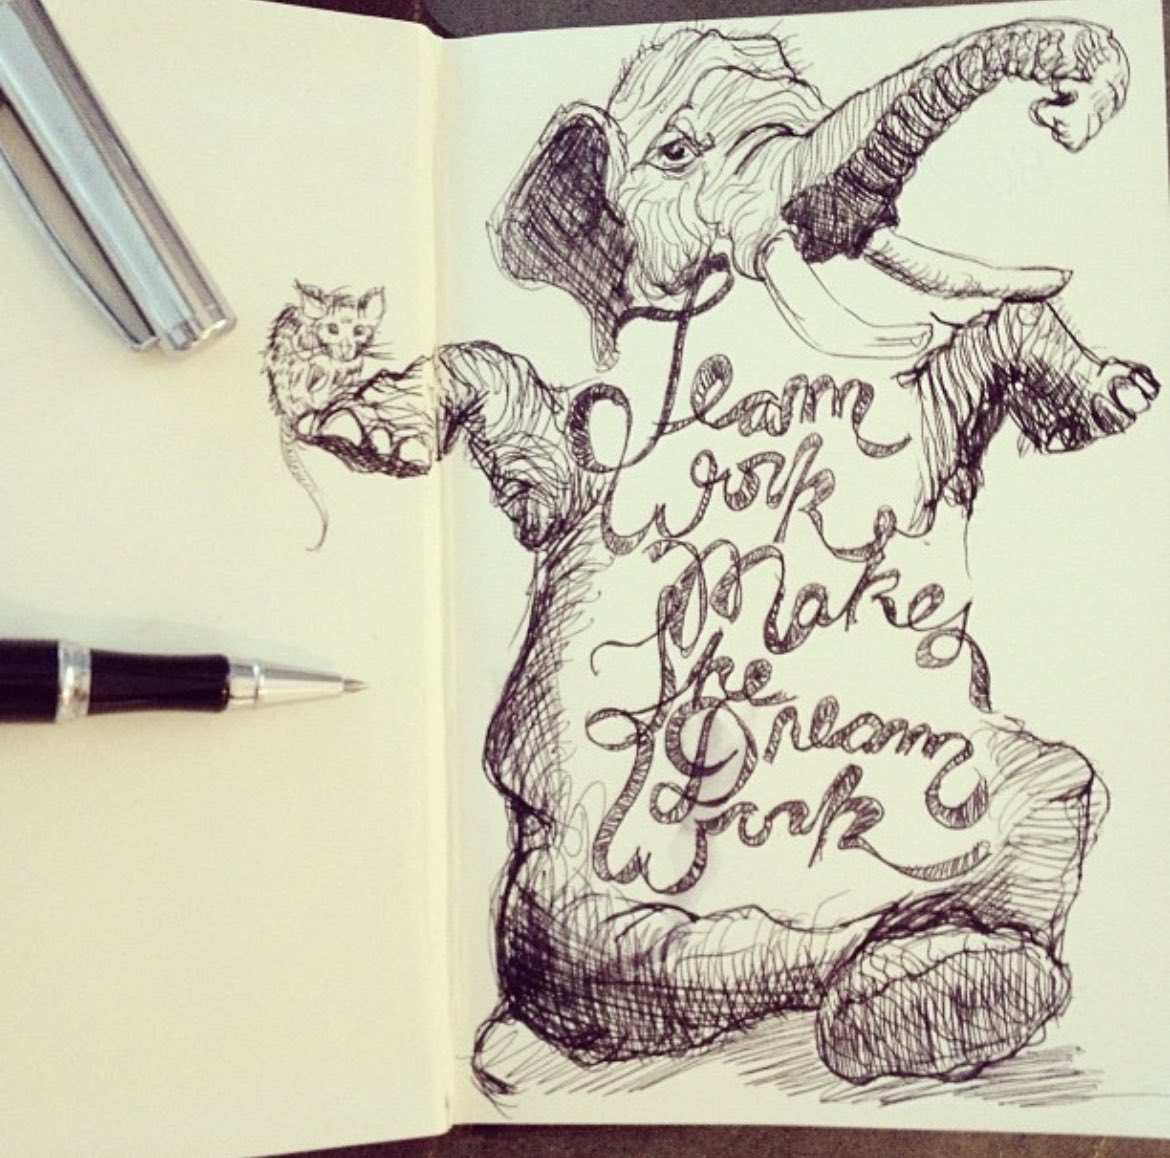 Team
Work
Makes
The
Dream
Work